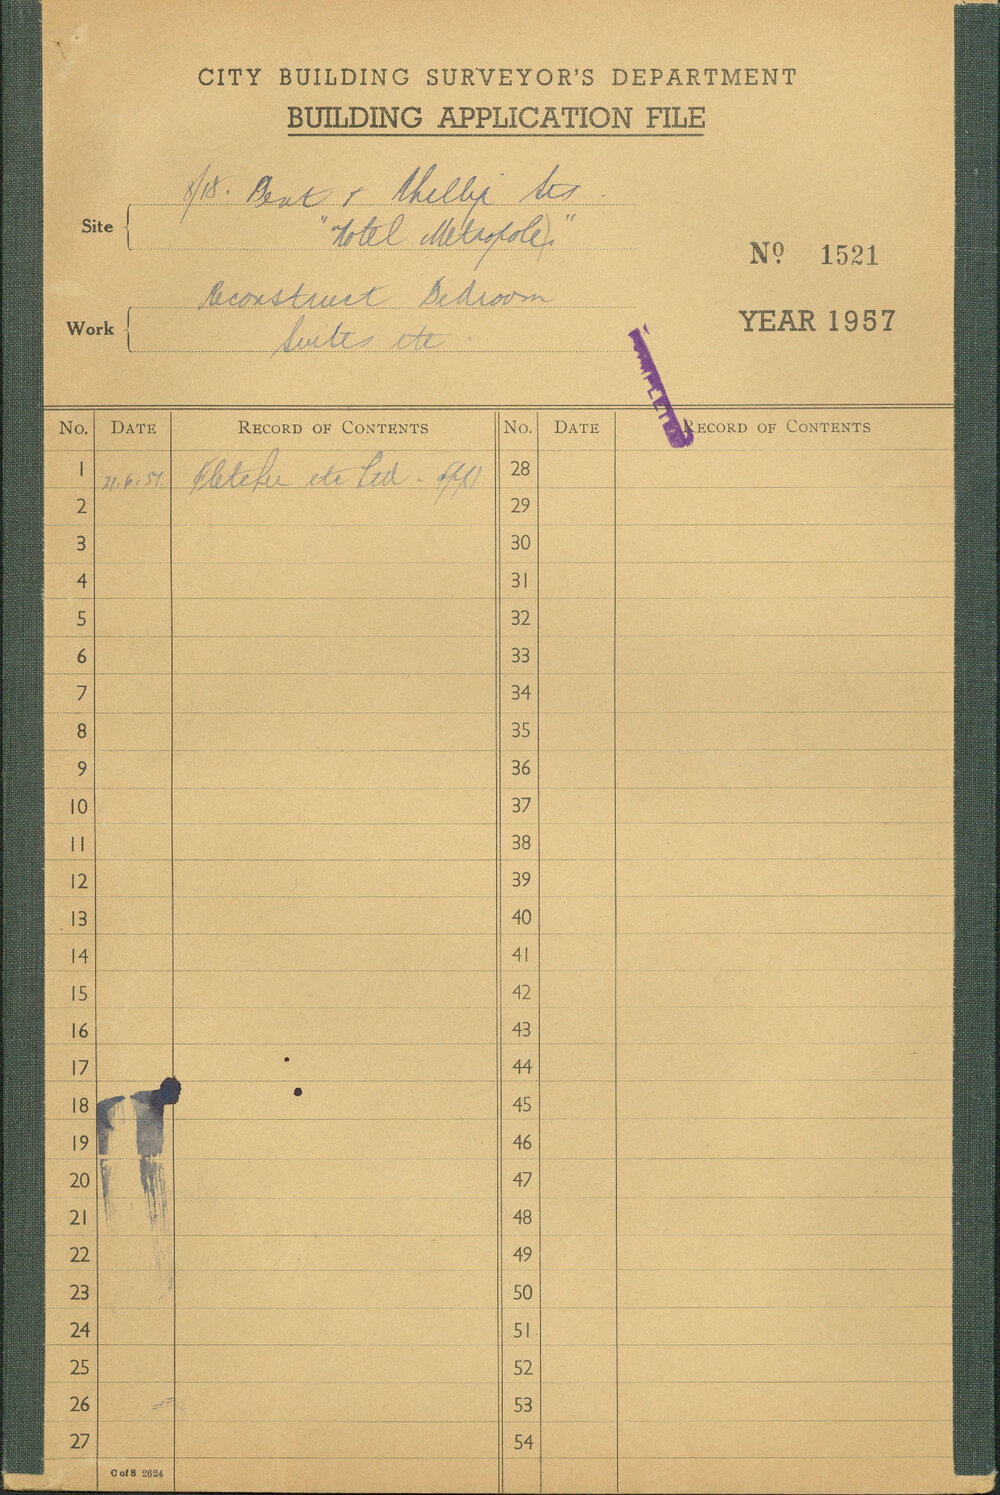 CITY BUILDING SURVEYOR'S DEPARTMENT
BUILDING APPLICATION FILE
Site
8/18. Bent & Phillip Sts.
"Hotel Metropole)."
Nº 1521
Work
Reconstruct Bedroom
Suites etc
YEAR 1957
COMPLETED
No. DATE RECORD OF CONTENTS No. DATE RECORD OF CONTENTS
1 21.6.57. Fletcher etc Ltd - appl 28
2 29
3 30
4 31
5 32
6 33
7 34
8 35
9 36
10 37
11 38
12 39
13 40
14 41
15 42
16 43
17 44
18 45
19 46
20 47
21 48
22 49
23 50
24 51
25 52
26 53
27 54
C of S 2624